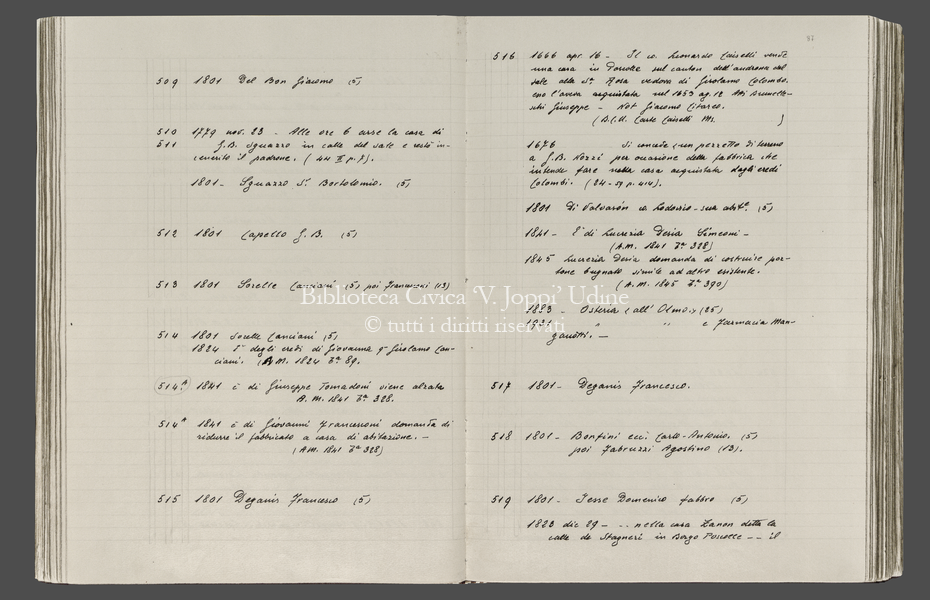 509 1801 Del Bon Giacomo (5)
510 1779 nov. 23 - Alle ore 6 arse la casa di
511 G.B. Sguazzo in calle del sale e restò in-
cenerito il padrone. (44 p. 7).
1801 - Sguazzo Sr Bortolomio. (5)
512 1801 Capello G. B. (5)
513 1801 Sorelle Canciani (5) poi Franzoni (13)
514 1801 Sorelle Canciani (5)
1824 degli eredi di Giovanna q.m Girolamo Can-
ciani. (A.M. 1824 89.
514 1841 è di Giuseppe Tomadoni viene alzata
A.M. 1841 328.
514 1841 è di Giovanni Francesconi domanda di
ridurre il fabbricato a casa di abitazione. -
(A.M. 1841 328)
515 1801 Deganis Francesco (5)
516 1666 apr. 16 - Il co. Leonardo Caiselli vende
una casa in Poscolle sul canton dell'androna del
sale alla Sra Rosa vedova di Girolamo Colombo.
esso l'aveva acquistata nel 1653 ag. 12 Atti Brunelle-
schi Giuseppe - Not Giacomo
(B.C.U. Carte Caiselli Ms. )
1676 Si concede un pezzetto di terreno
a G.B. Rozzi per occasione della fabbrica che
intende fare nella casa acquistata dagli eredi
Colombi. (24-59 p. 414).
1801 di Valvasòn co. Lodovico - sua abit.e (5)
1841 - E' di Lucrezia Desia Simeoni -
(A.M. 1841 328)
1845 Lucrezia Desia domanda di costruire por-
tone bugnato simile ad altro esistente.
(A.M. 1845 390)
1883 - Osteria (all' Olmo), (25)
1931 " " e Farmacia Man-
ganotti. -
517 1801 - Deganis Francesco.
518 1801 - Bonfini ecc. Carlo-Antonio. (5)
poi Fabruzzi Agostino (13).
519 1801 - Jesse Domenico fabbro (5)
1823 dic 29 - .. nella casa Zanon detta la
calle de Stagneri in Borgo Poscolle -- il
Biblioteca Civica 'V. Joppi' Udine
© tutti i diritti riservati